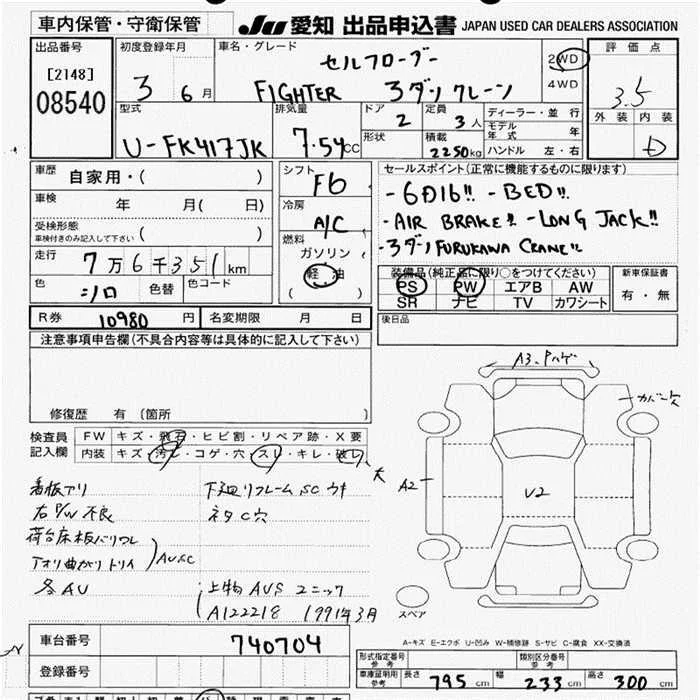 車内保管・守衛保管
JU 愛知 出品申込書 JAPAN USED CAR DEALERS ASSOCIATION
出品番号
[2148]
08540
初度登録年月
3 6月
車名・グレード
セルフローダー
FIGHTER 3ダンクレーン
2WD
4WD
評価点
3.5
外装 内装
D
型式
U-FK417JK
排気量
7.54cc
ドア
2
形状
定員
3人
積載
2250kg
ディーラー・並行
モデル年式 年
ハンドル 左・右
車歴
自家用・( )
車検
年 月( 日)
受検形態
車検付きのみ記入して下さい ( )
走行
7万6千351km
色
シロ
色替
色コード
シフト
F6
冷房
A/C
燃料
ガソリン
軽油
( )
セールスポイント(正常に機能するものに限ります)
-6D16!! -BED!!
-AIR BRAKE!! -LONG JACK!!
-3ダン FURUKAWA CRANE!!
装備品(純正品に限り○をつけてください)
PS PW エアB AW
SR ナビ TV カワシート
新車保証書
有・無
R券 10980円
名変期限 月 日
後日品
注意事項申告欄(不具合内容等は具体的に記入して下さい)
修復歴 有(箇所 )
検査員記入欄
FW キズ・飛石・ヒビ割・リペア跡・X要
内装 キズ・汚レ・コゲ・穴・スレ・キレ・破レ 大
看板アリ
右P/W不良
荷台床板バリワレ
アオリ曲がりトリイ
AUSC
各AU
下廻リフレームSCウキ
ネタC穴
上物AUS ユニック
A122218 1991年3月
A3 Pハゲ
カバー欠
A2
U2
スペア
A-キズ E-エクボ U-凹み W-補修跡 S-サビ C-腐食 XX-交換済
車台番号
740704
登録番号
形式指定番号 参考
類別区分番号 参考
車庫証明用 参考
長さ 795cm
幅 233cm
高さ 300cm